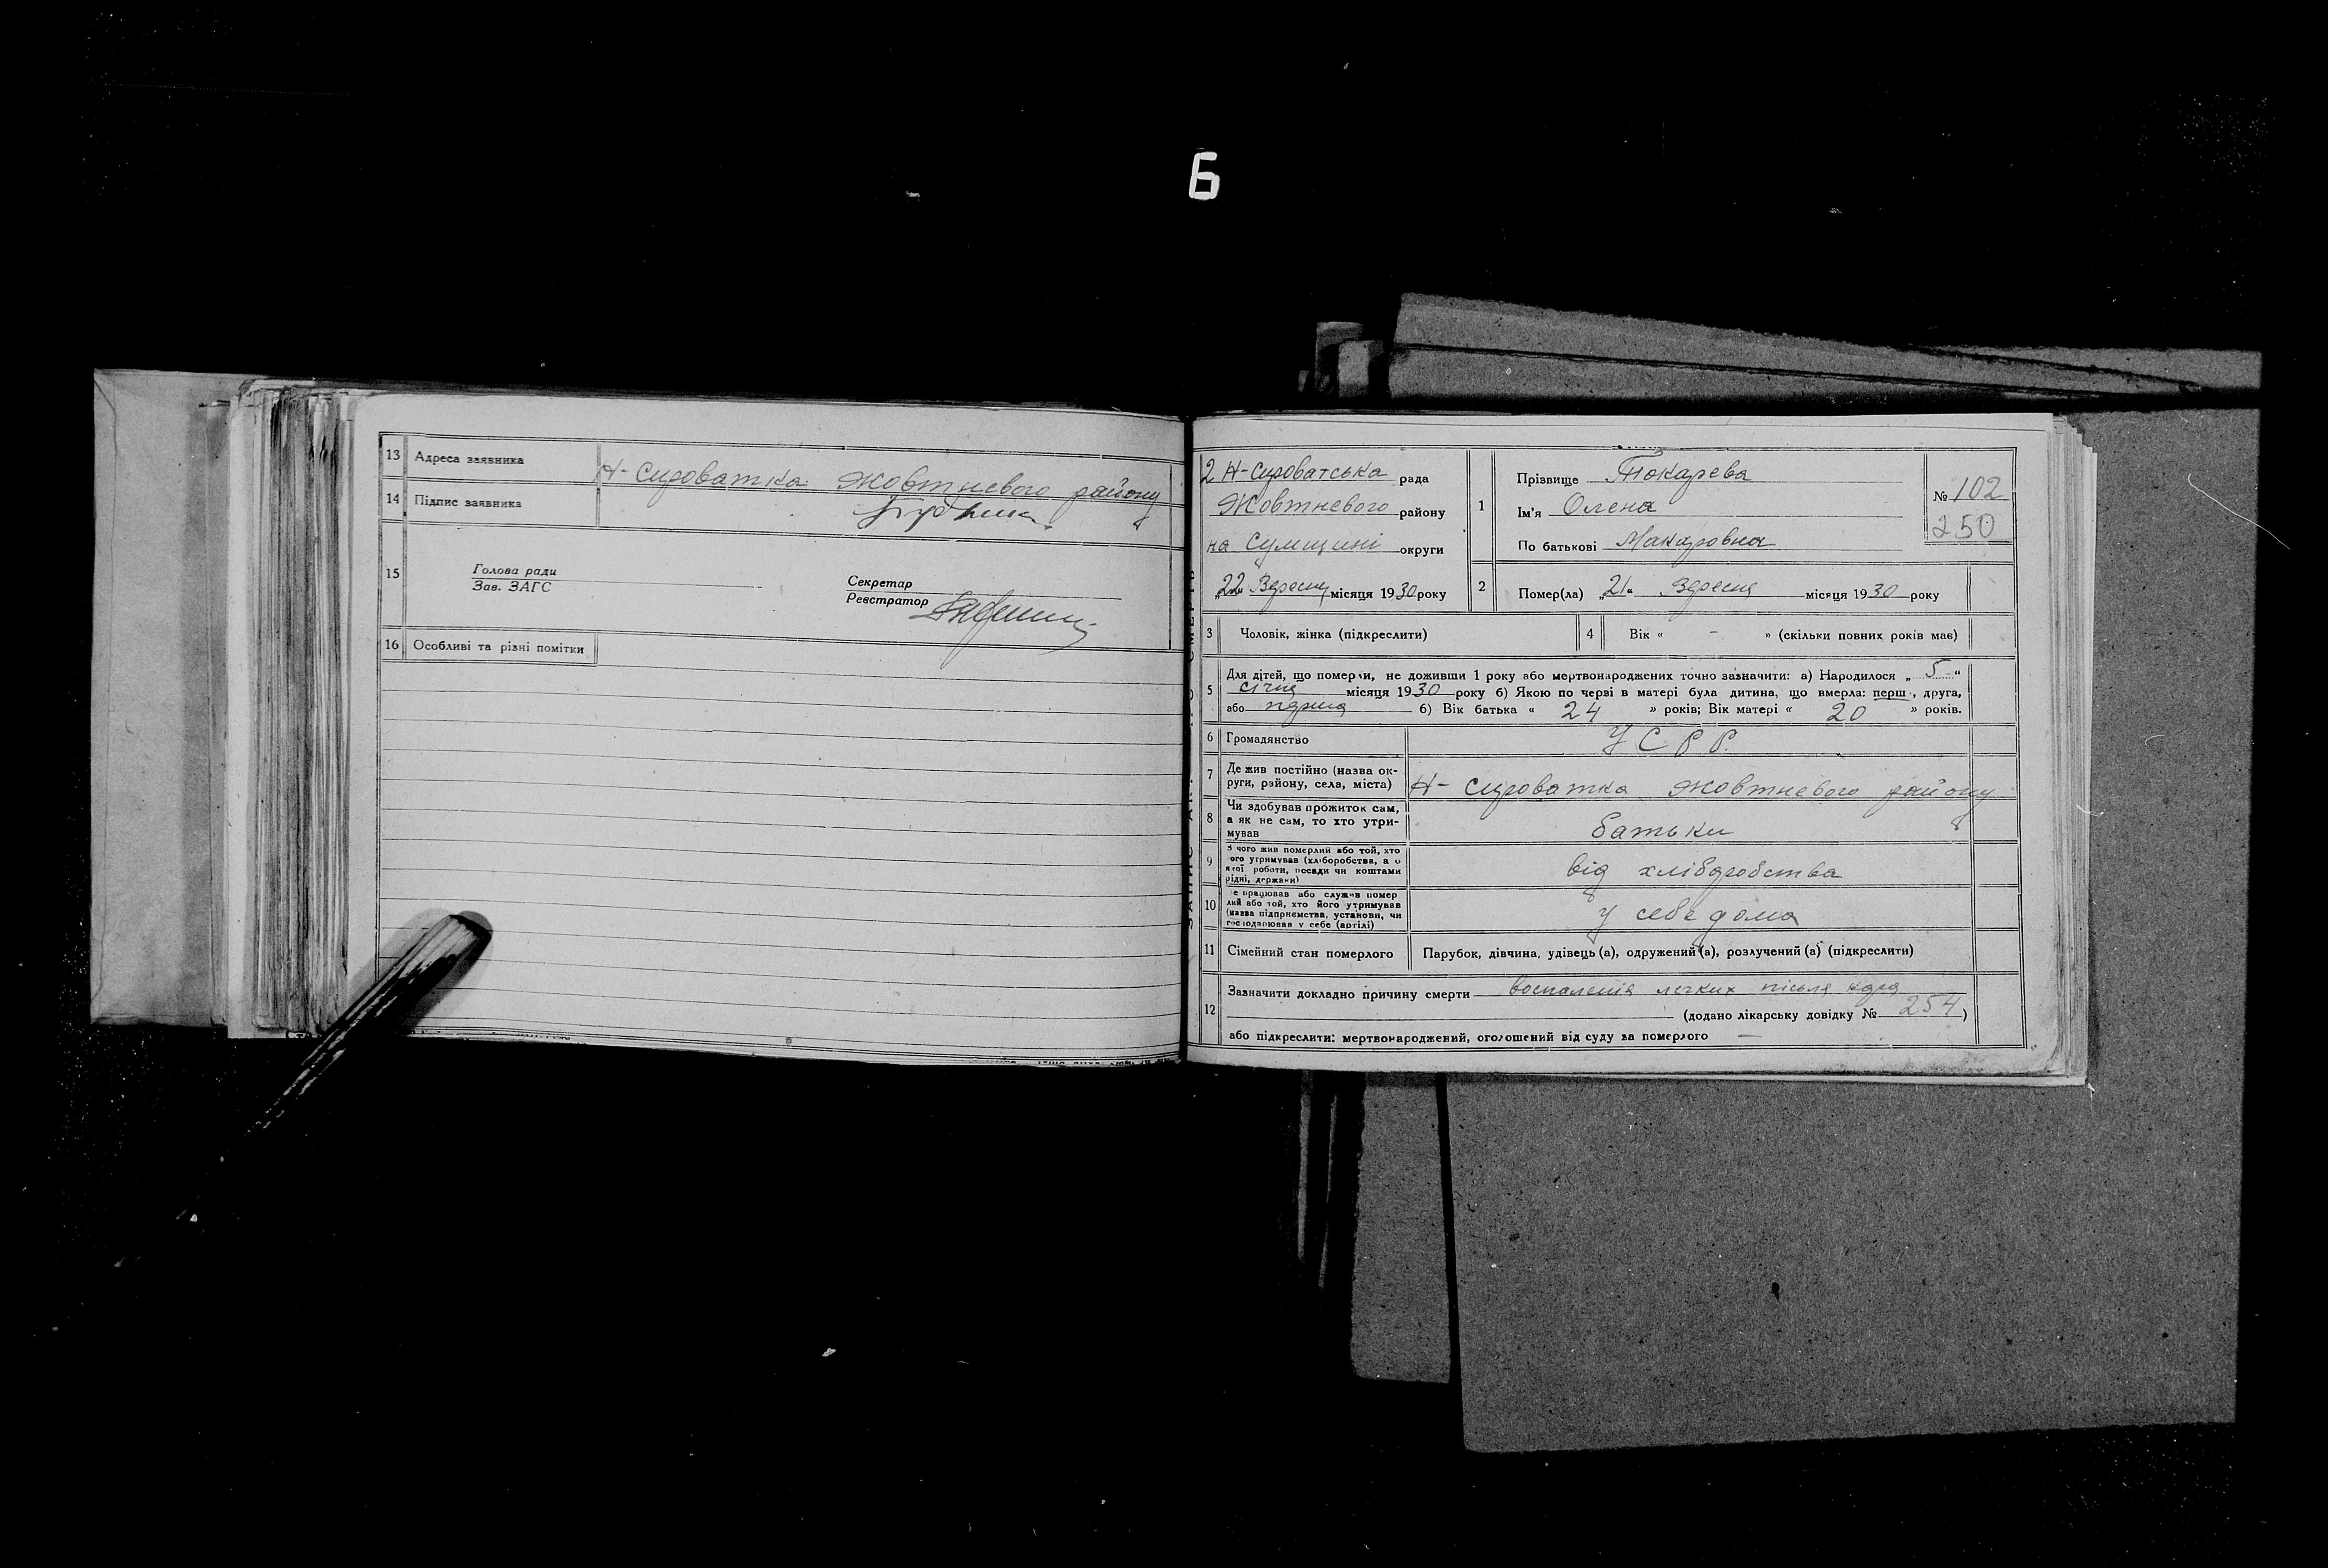 Б
13 Адреса заявника Н-Сироватка Жовтневого району
14 Підпис заявника
15 Голова ради
Зав. ЗАГС
Секретар
Реєстратор
16 Особливі та різні помітки
2 Н-Сироватська рада
Жовтневого району
на Сумщині округи
„22“ Вересня місяця 1930 року
1 Прізвище Токарева
Ім'я Олена
По батькові Макаровна
№ 102
250
2 Помер(ла) „21“ Вересня місяця 1930 року
3 Чоловік, жінка (підкреслити)
4 Вік « - » (скільки повних років має)
5 Для дітей, що померли, не доживши 1 року або мертвонароджених точно зазначити: а) Народилося „5“
січня місяця 1930 року б) Якою по черзі в матері була дитина, що вмерла: перш , друга,
або перша б) Вік батька « 24 » років; Вік матері « 20 » років.
6 Громадянство УСРР.
7 Де жив постійно (назва ок-
руги, району, села, міста) Н-Сироватка Жовтневого району
8 Чи здобував прожиток сам,
а як не сам, то хто утри-
мував батьки
9 З чого жив померлий або той, хто
ого утримував (хліборобства, а о
якої роботи, посади чи коштами
рідні, держави) від хліборобства
10 е працював або служив помер
лий або той, хто його утримував
(назва підприємства, установи, чи
господарював у себе (артілі) у себе дома
11 Сімейний стан померлого Парубок, дівчина, удівець (а), одружений (а), розлучений (а) (підкреслити)
12 Зазначити докладно причину смерти воспаленія легких після кора
(додано лікарську довідку № 254)
або підкреслити: мертвонароджений, оголошений від суду за померлого —